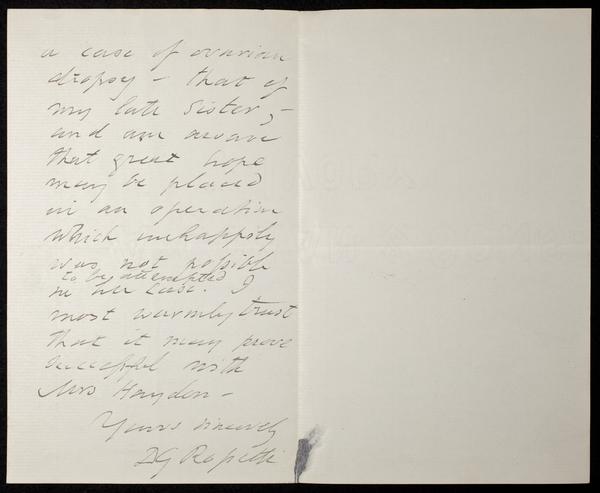 a case of ovarian
dropsy – that of
my late sister, –
and am aware
that great hope
may be placed
in an operation
which unhappily
was not possible
to be attempted
in her case. I
most warmly trust
that it may prove
successful with
Mrs Haydon –
Yours sincerely
DG Rossetti